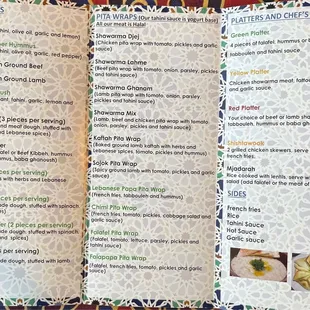 tahini, olive oil, garlic and lemon)
Hummus
olive oil, garlic, red pepper)
h Ground Beef
h Ground Lamb
tahini, garlic, lemon and
(3 pieces per serving)
and Lebanese spices)
or Beef Kibbeh, hummus,
hummus, baba ghonoush)
eces per serving)
with herbs and Lebanese
ces per serving)
side dough, stuffed with spinach
(2 pieces per serving)
dough, stuffed with spinach
per serving)
dough, with lamb,
PITA WRAPS (Our tahini sauce is yogurt base)
All our meat is Halal
Shawarma Djej
(Chicken pita wrap with tomato, pickles and garlic
sauce)
Shawarma Lahme
(Beef pita wrap with tomato, onion, parsley, pickles
and tahini sauce)
Shawarma Ghanam
(Lamb pita wrap with tomato, onion, parsley, pickles
and tahini sauce)
Shawarma Mix
(Lamb, beef and chicken pita wrap with tomato, onion,
parsley, pickles and tahini sauce)
Kaftah Pita Wrap
(Baked ground lamb kaftah with herbs and
Lebanese spices, tomato, pickles and hummus)
Sojok Pita Wrap
(Spicy ground lamb with tomato, pickles and garlic
sauce)
Lebanese Papa Pita Wrap
(French fries, tabbouleh and hummus)
Chimi Pita Wrap
(French fries, tomato, pickles, cabbage salad and
garlic sauce)
Falafel Pita Wrap
(Falafel, tomato, lettuce, parsley, pickles and
tahini sauce)
Falapapa Pita Wrap
(Falafel, french fries, tomato, pickles and garlic
sauce)
PLATTERS AND CHEF'S
Green Platter
4 pieces of falafel, hummus or
tabbouleh and tahini sauce
Yellow Platter
Chicken shawarma meat, fattoush
and garlic sauce
Red Platter
Your choice of beef or lamb shawarma
tabbouleh, hummus or baba gha
Shishtawook
2 grilled chicken skewers, serve
french fries.
Mjadarah
Rice cooked with lentils, served with
salad (add falafel or the meat of
SIDES
French fries
Rice
Tahini Sauce
Hot Sauce
Garlic sauce